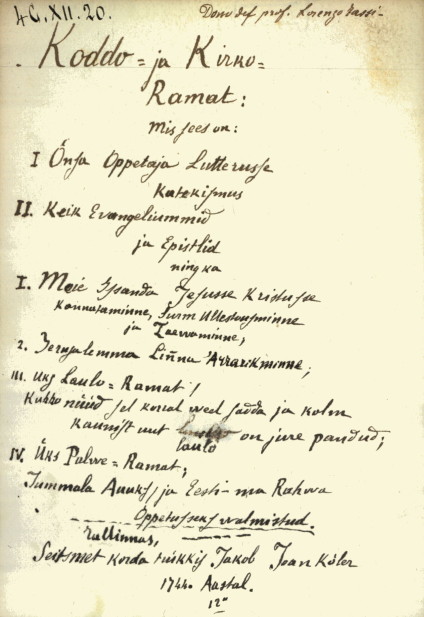 4C.XII.20.
Dono del prof. Lorenzo
Koddo= ja Kirko=
Ramat:
Mis sees on:
I Önsa Oppetaja Lutterusse
Katekismus
II. Keik Evangeliummid
ja Epistlid
ning ka
I. Meie Issanda Jesusse Kristusse
Kannataminne, Surm Ullestousminne
ja Taewaminne,
2. Jerusalemma Liñna Ärrarikminne;
III. Üks Laulo=Ramat,
Kuhho nüüd sel korral weel sadda ja kolm
kaunist uut
laulo on jure pandud;
IV. Üks Palwe=Ramat;
Jummala Auuks, ja Eesti-ma Rahwa
Öppetusseks walmistud.
Tallinnas,
Seitsmet korda trükkis Jakob Joan Köler
1744. Aastal.
12°